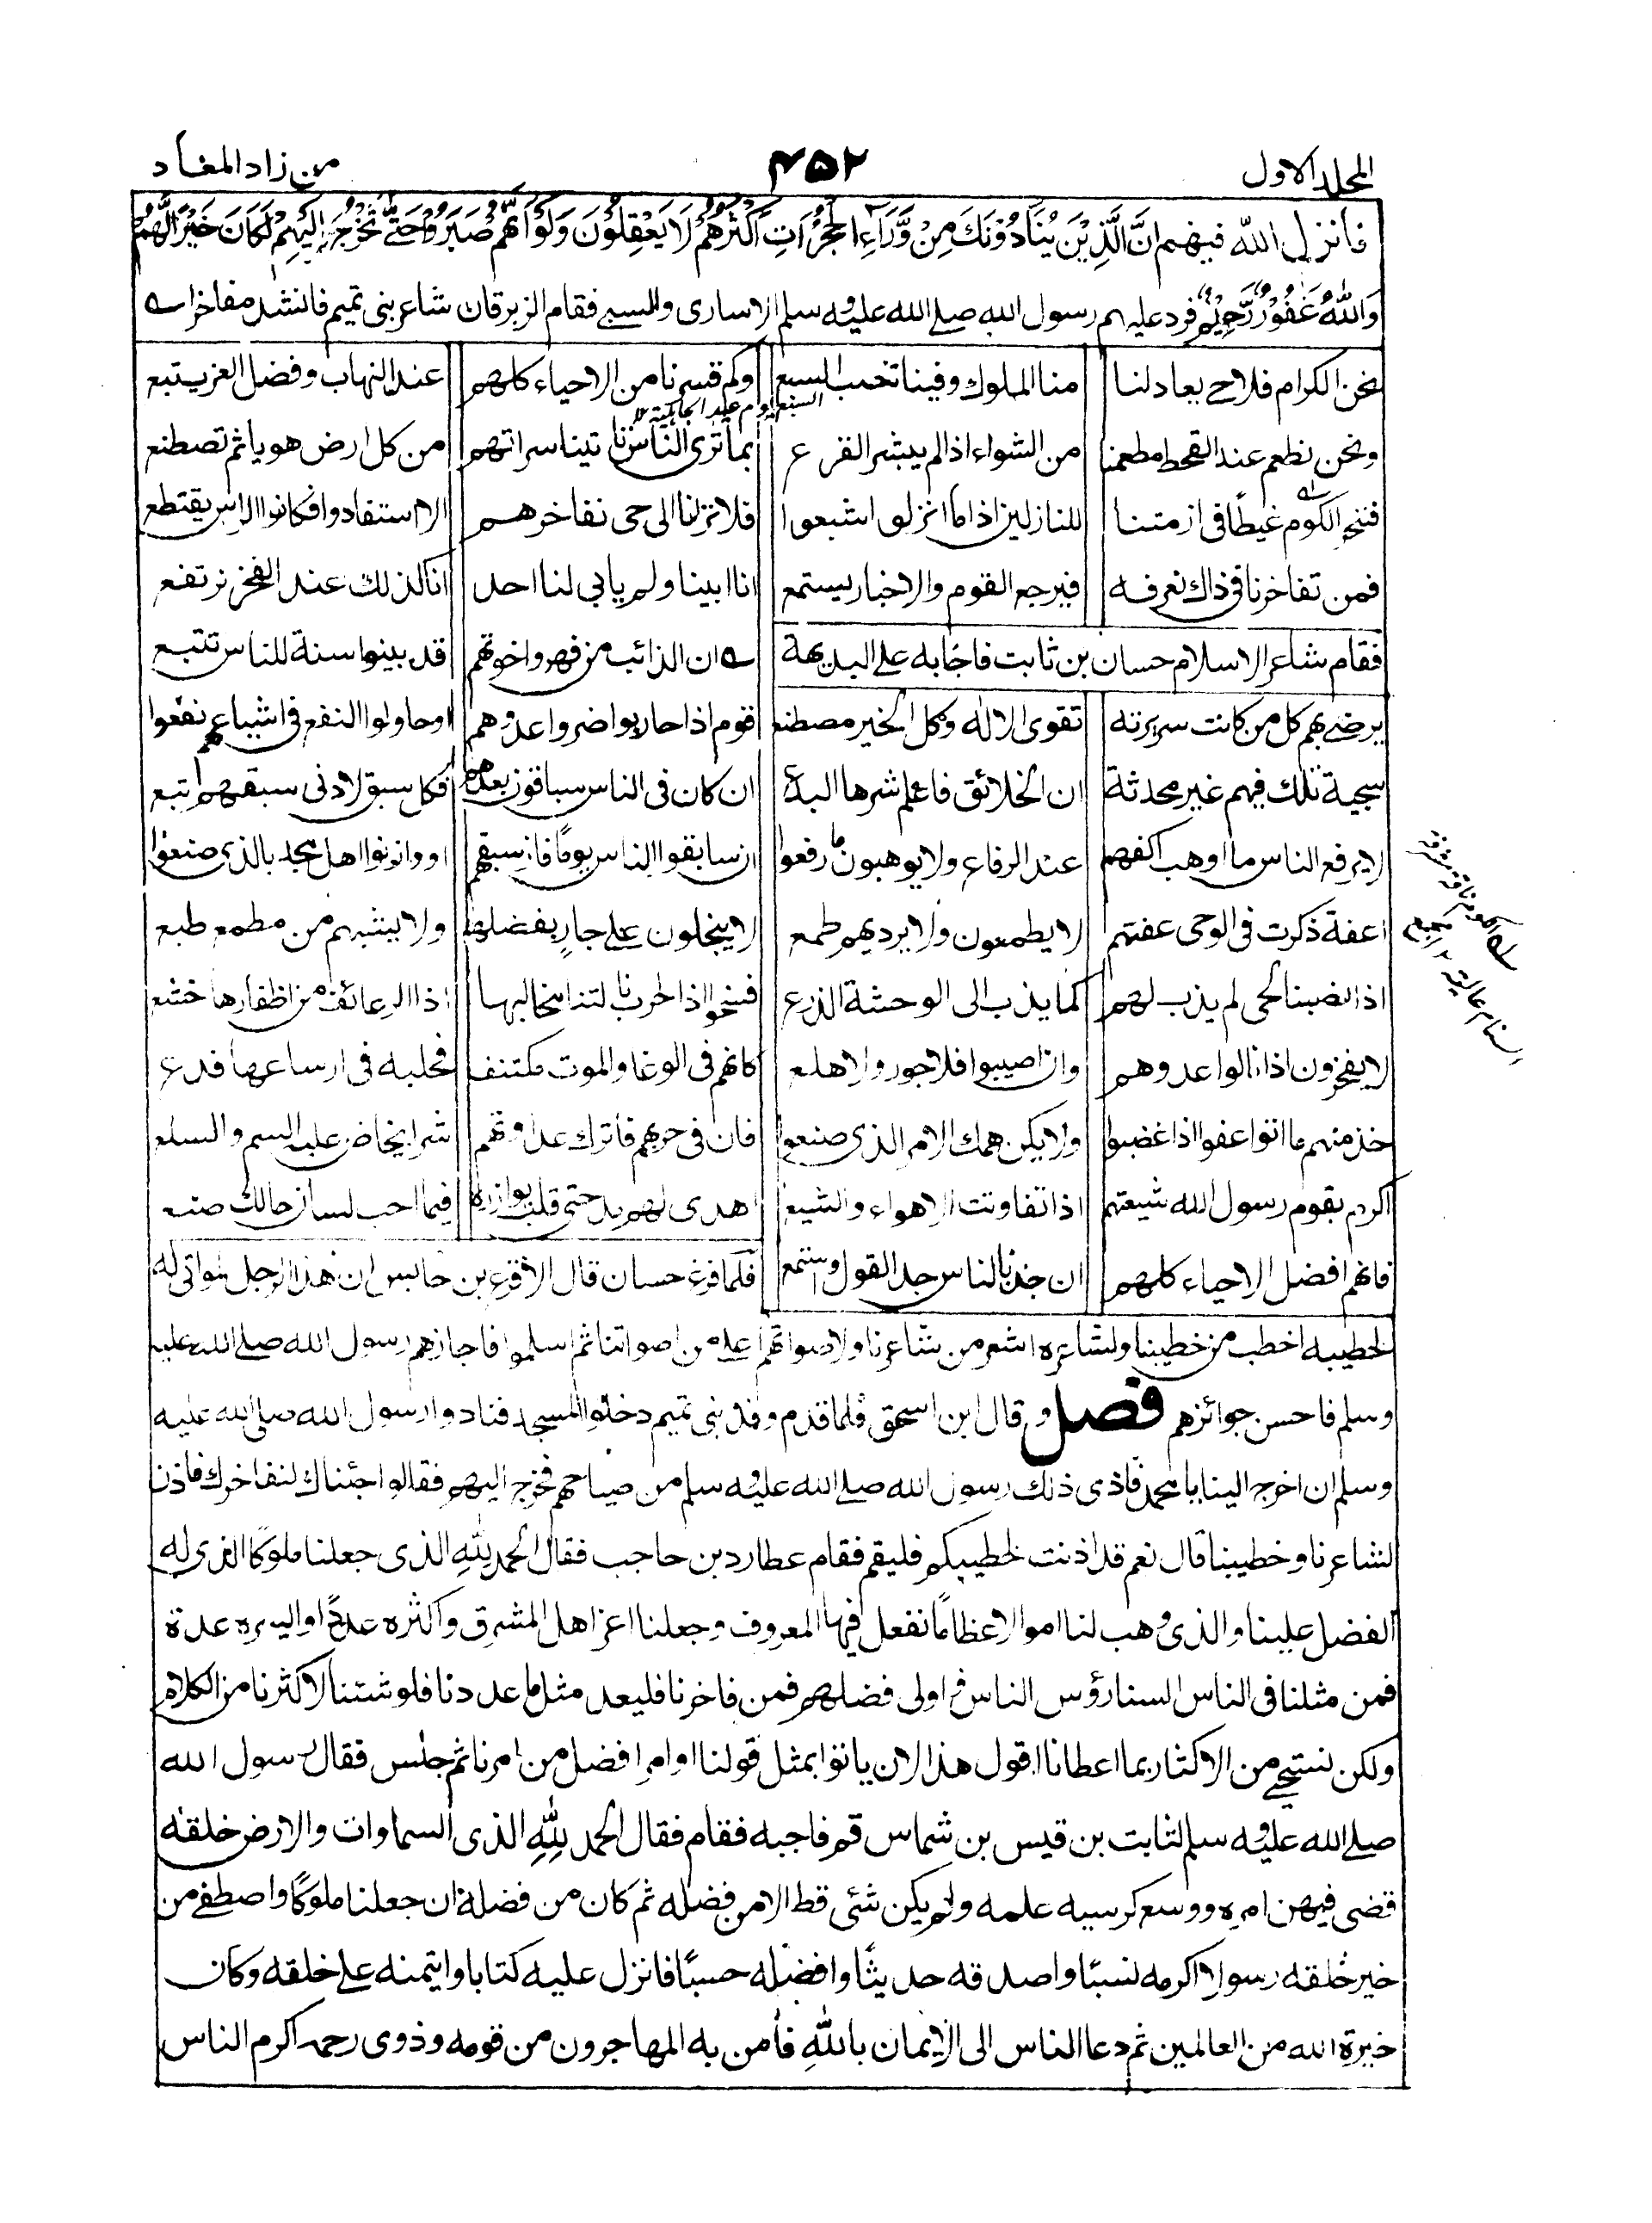 المجلد الاول
٤٥٢
من زاد المعاد
فانزل الله فيهم اِنَّ الَّذِيْنَ يُنَادُوْنَكَ مِنْ وَّرَآءِ الْحُجُرَاتِ اَكْثَرُهُمْ لَا يَعْقِلُوْنَ وَلَوْ اَنَّهُمْ صَبَرُوْا حَتّٰى تَخْرُجَ اِلَيْهِمْ لَكَانَ خَيْرًا لَّهُمْ
وَاللّٰهُ غَفُوْرٌ رَّحِيْمٌ فرد عليهم رسول الله صلے الله عليه وسلم الاسارى والسبي فقام الزبرقان شاعر بنى تميم فانشد مفاخرا ے
نحن الكرام فلا حي يعادلنا منا الملوك وفينا تنصب السبع وكم قسرنا من الاحياء كلهم عند النهاب وفضل العز يتبع
ونحن نطعم عند القحط مطعمنا من الشواء اذا لم يبشر القزع بما ترى الناس تاتينا سراتهم من كل ارض هويا ثم تصطنع
فننحر الكوم غبطًا فى ازمتنا للنازلين اذا ما انزلوا اشبعوا فلا ترانا الى حى نفاخرهم الا استفادوا فكانوا الراس يقتطع
فمن تفاخرنا فى ذاك نعرفه فيرجع القوم والاخبار يستمع انا ابينا ولم يابى لنا احد انا كذلك عند الفخر نرتفع
فقام شاعر الاسلام حسان بن ثابت فاجابه على البديهة ے ان الذائب من فهر واخوتهم قد بينوا سنة للناس تتبع
يرضى بهم كل من كانت سريرته تقوى الاله وكل الخير مصطنع قوم اذا حاربوا ضروا عدوهم او حاولوا النفع فى اشياعهم نفعوا
سجية تلك فيهم غير محدثة ان الخلائق فاعلم شرها البدع ان كان فى الناس سباقون بعدهم فكل سبق لادنى سبقهم تبع
لا يرفع الناس ما اوهت اكفهم عند الرفاع ولا يوهبون ما رفعوا ان سابقوا الناس يومًا فاز سبقهم او وازنوا اهل مجد بالذى صنعوا
اعفة ذكرت فى الوحى عفتهم لا يطمعون ولا يرديهم طمع لا يبخلون على جارٍ بفضلهم ولا يشبهم من مطمع طبع
اذا نصبنا لحى لم يذب لهم كما يذب الى الوحشة الذرع ننحوا اذا الحرب نالتنا مخالبها اذا الزعائف من اظفارها خشع
لا يفخرون اذا نالوا عدوهم وان اصيبوا فلا جور ولا هلع كانهم فى الوغا والموت مكتنف فحلبه فى ارساعها فدع
خذ منهم ما اتوا عفوا اذا غضبوا ولا يكن همك الامر الذى صنعوا فان فى حربهم فاترك عداوتهم شرا يخاض عليه السم والسلع
اكرم بقوم رسول الله شيعتهم اذا تفاوتت الاهواء والشيع اهدى لهم يد حتى قلب يوازره فيما احب لسان حالك صنع
فانهم افضل الاحياء كلهم ان جد بالناس جد القول واستمع فلما فرغ حسان قال الاقرع بن حابس ان هذا الرجل لمواتى له
لخطيبه اخطب من خطيبنا ولشاعره اشعر من شاعرنا ولاصواتهم اعلى من اصواتنا ثم اسلموا فاجازهم رسول الله صلے الله عليه
وسلم فاحسن جوائزهم فصل وقال ابن اسحق فلما قدم وفد بنى تميم دخلوا المسجد فنادوا رسول الله صلى الله عليه
وسلم ان اخرج الينا يا محمد فاذى ذلك رسول الله صلے الله عليه وسلم من صياحهم فخرج اليهم فقالوا جئناك لنفاخرك فاذن
لشاعرنا وخطيبنا قال نعم قد اذنت لخطيبكم فليقم فقام عطارد بن حاجب فقال الحمد لله الذى جعلنا ملوكا الذى له
الفضل علينا والذى وهب لنا اموالا عظامًا نفعل فيها المعروف وجعلنا اعز اهل المشرق واكثره عددًا وايسره عدة
فمن مثلنا فى الناس السنا رؤس الناس واولى فضلهم فمن فاخرنا فليعد مثل ما عددنا فلو شئنا لاكثرنا من الكلام
ولكن نستحيى من الاكثار بما اعطانا اقول هذا الان ياتوا بمثل قولنا او امر افضل من امرنا ثم جلس فقال رسول الله
صلے الله عليه وسلم لثابت بن قيس بن شماس قم فاجبه فقام فقال الحمد لِلّٰهِ الذى السماوات والارض خلقه
قضى فيهن امره ووسع كرسيه علمه ولم يكن شئى قط الا من فضله ثم كان من فضله ان جعلنا ملوكًا واصطفى من
خير خلقه رسولا اكرمه نسبًا واصدقه حديثًا وافضله حسبًا فانزل عليه كتابا وايتمنه على خلقه وكان
خيرة الله من العالمين ثم دعا الناس الى الايمان باللهِ فأمن به المهاجرون من قومه وذوى رحمه اكرم الناس
الكوم ناقة مشرفة
السنام عالية ١٢ مجمع